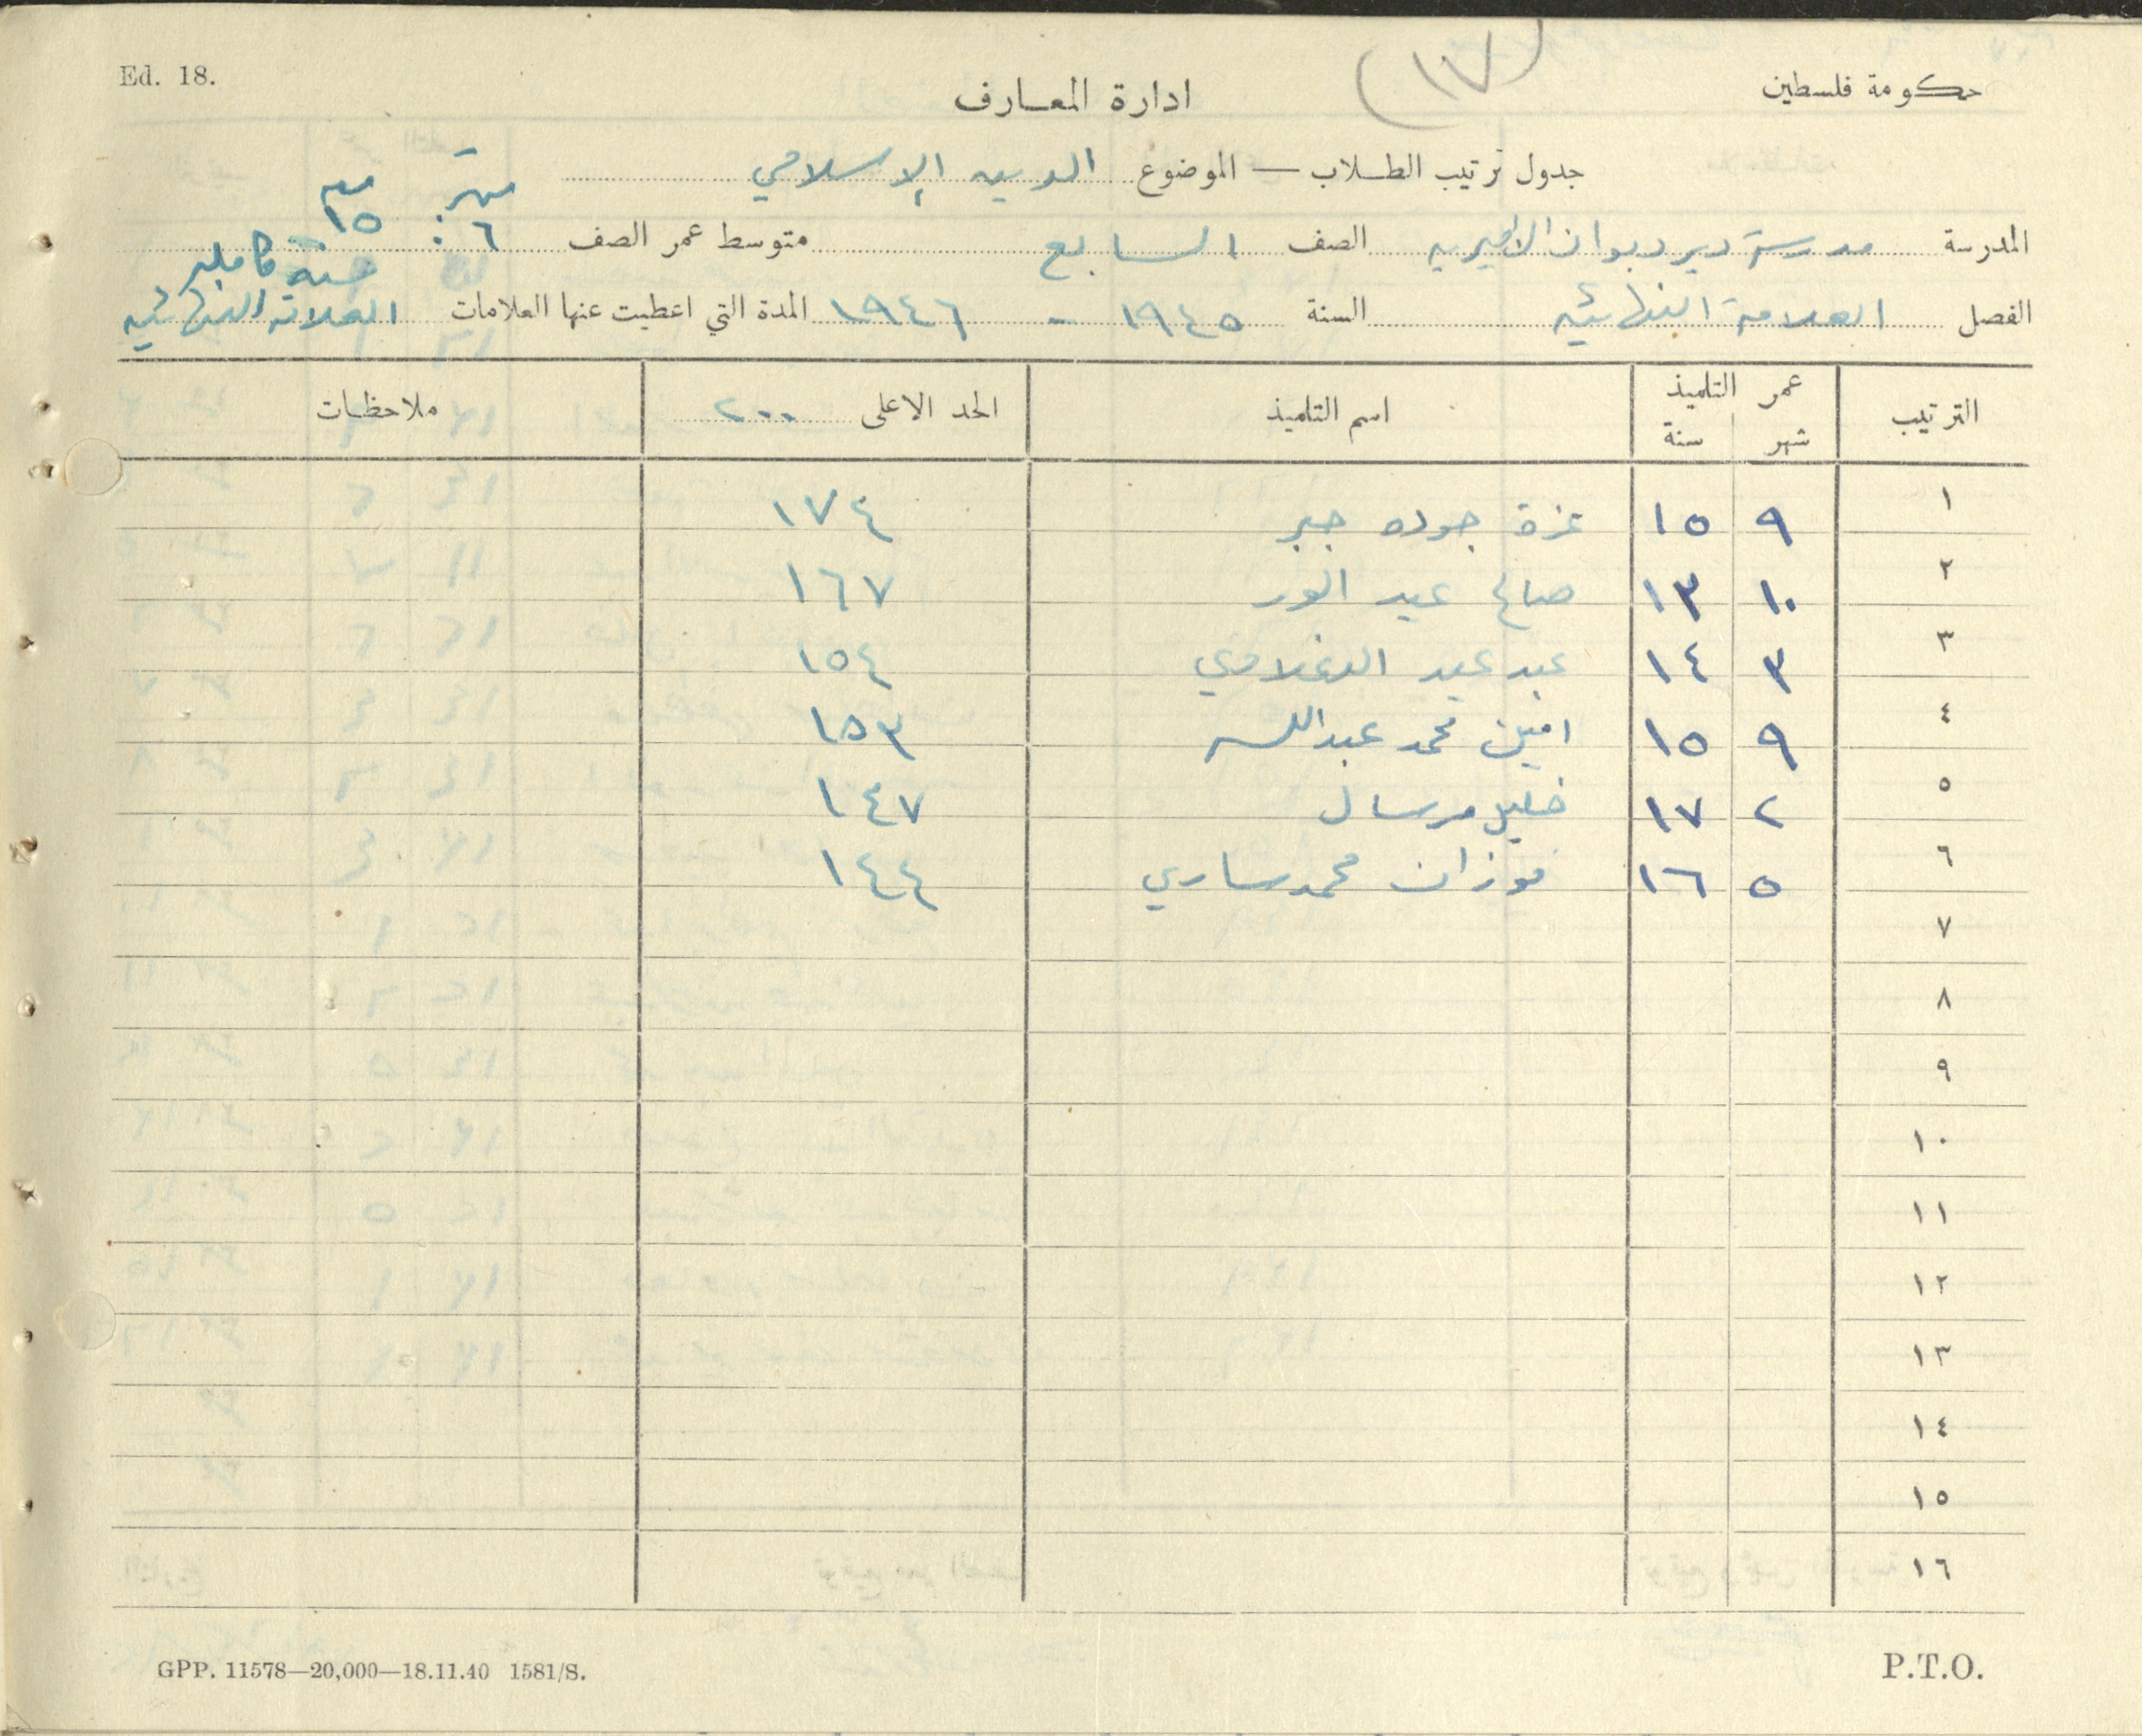 Ed. 18.
(١٧)
حكومة فلسطين
ادارة المعارف
جدول ترتيب الطلاب — الموضوع الدين الإسلامي
شهر سنة
المدرسة مدرسة دير ديوان الاميرية الصف السابع متوسط عمر الصف ٦ : ١٥
سنة كاملة
الفصل العلامة النهائية السنة ١٩٤٥ - ١٩٤٦ المدة التي اعطيت عنها العلامات العلامة النهائية
الترتيب عمر التلميذ شهر سنة اسم التلميذ الحد الاعلى ٢٠٠ ملاحظات
١ ٩ ١٥ عزة جوده جبر ١٧٤
٢ ١٠ ١٣ صالح عبد ١٦٧
٣ ٣ ١٤ عبد عبد ١٥٤
٤ ٩ ١٥ امين محمد عبدالله ١٥٣
٥ ٢ ١٧ خليل مرسال ١٤٧
٦ ٥ ١٦ فوزان محمد ساري ١٤٤
٧
٨
٩
١٠
١١
١٢
١٣
١٤
١٥
١٦
GPP. 11578—20,000—18.11.40 1581/S.
P.T.O.